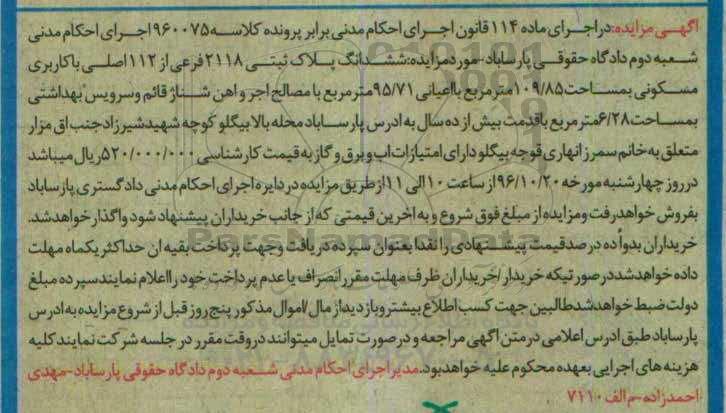 آگهی مزایده: در اجرای ماده ۱۱۴ قانون اجرای احکام مدنی برابر پرونده کلاسه ۹۶۰۰۷۵ اجرای احکام مدنی
شعبه دوم دادگاه حقوقی پارساباد-مورد مزایده: ششدانگ پلاک ثبتی ۲۱۱۸ فرعی از ۱۱۲ اصلی با کاربری
مسکونی بمساحت ۱۰۹/۸۵ متر مربع با اعیانی ۹۵/۷۱ متر مربع با مصالح اجر و اهن شناژ قائم وسرویس بهداشتی
بمساحت ۶/۲۸ متر مربع با قدمت بیش از ده سال به ادرس پارساباد محله بالا بیگلو کوچه شهید شیرزاد جنب اق مزار
متعلق به خانم سمرز انهاری قوجه بیگلو دارای امتیازات اب و برق و گاز به قیمت کارشناسی ۵۲۰/۰۰۰/۰۰۰ ریال میباشد
در روز چهارشنبه مورخه ۹۶/۱۰/۲۰ از ساعت ۱۰ الی ۱۱ از طریق مزایده در دایره اجرای احکام مدنی دادگستری پارساباد
بفروش خواهد رفت ومزایده از مبلغ فوق شروع و به اخرین قیمتی که از جانب خریداران پیشنهاد شود واگذار خواهد شد.
خریداران بدوأ ده درصد قیمت پیشنهادی را نقدا بعنوان سپرده دریافت وجهت پرداخت بقیه ان حداکثر یکماه مهلت
داده خواهد شد در صورتیکه خریدار /خریداران ظرف مهلت مقرر انصراف یا عدم پرداخت خود را اعلام نمایند سپرده مبلغ
دولت ضبط خواهد شد طالبین جهت کسب اطلاع بیشتر و بازدید از مال/اموال مذکور پنج روز قبل از شروع مزایده به ادرس
پارساباد طبق ادرس اعلامی در متن اگهی مراجعه و در صورت تمایل میتوانند در وقت مقرر در جلسه شرکت نمایند کلیه
هزینه های اجرایی بعهده محکوم علیه خواهد بود. مدیر اجرای احکام مدنی شعبه دوم دادگاه حقوقی پارساباد-مهدی
احمدزاده-م الف ۷۱۱۰
ParsNamadData